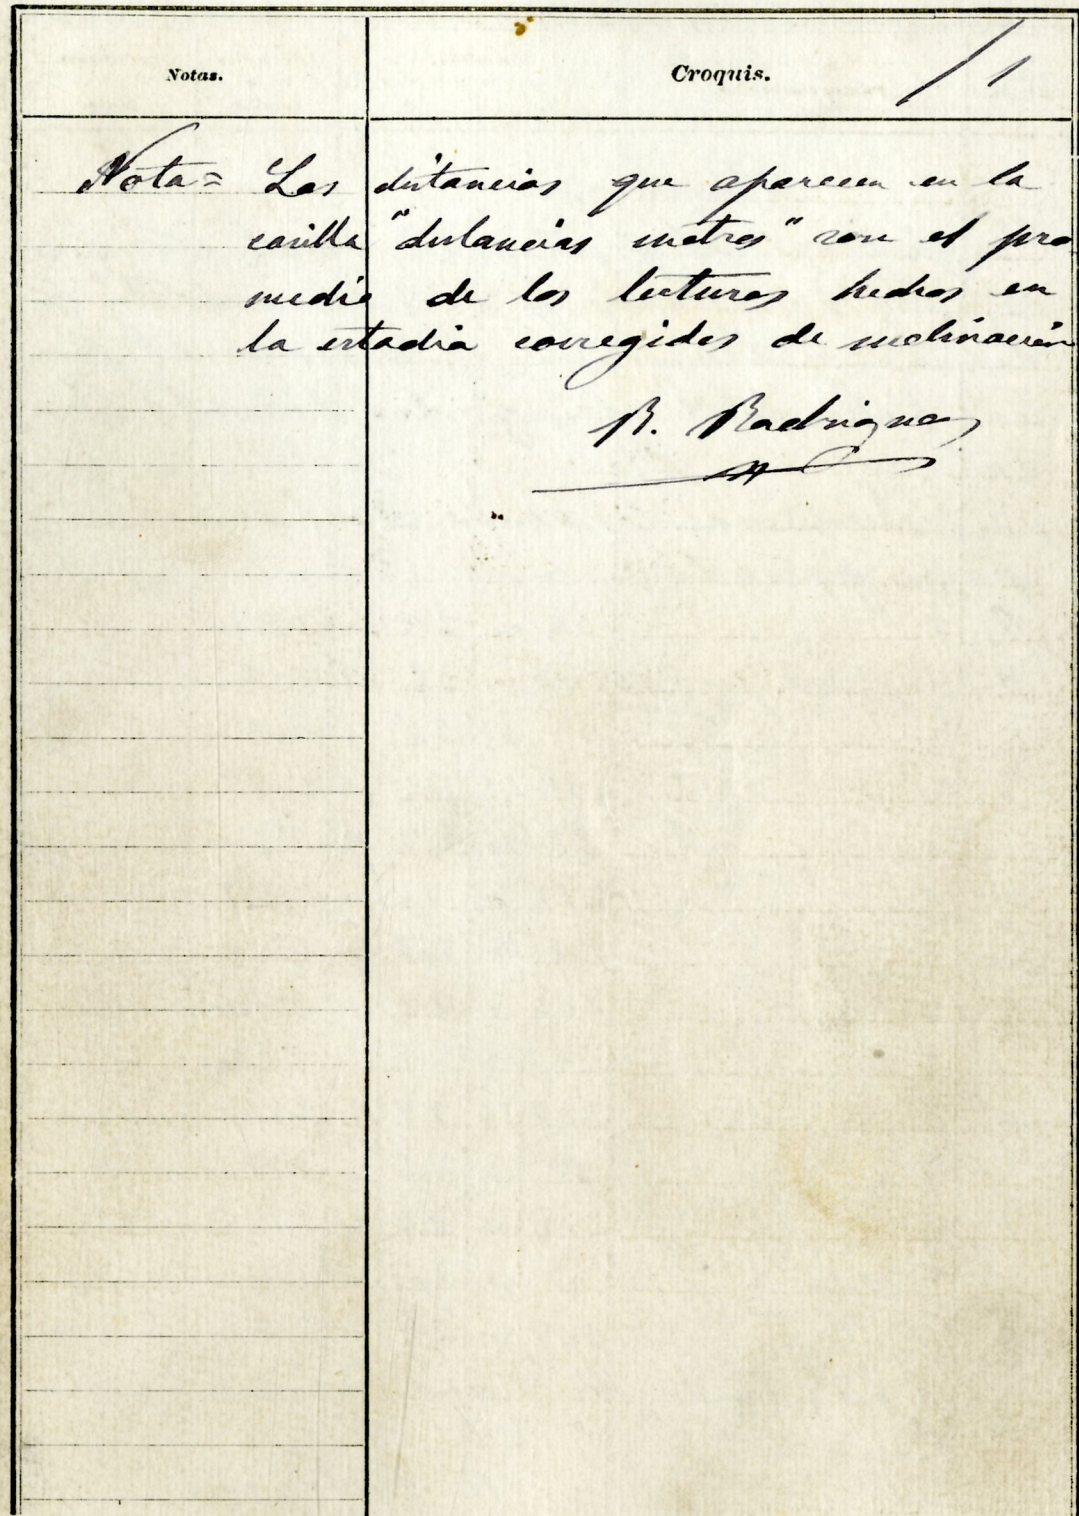 Notas.
Croquis. / 1
Nota = Las distancias que aparecen en la
casilla "distancias metros" son el pro
medio de las lecturas hechas en
la estadia corregidas de inclinación
R. Rodriguez